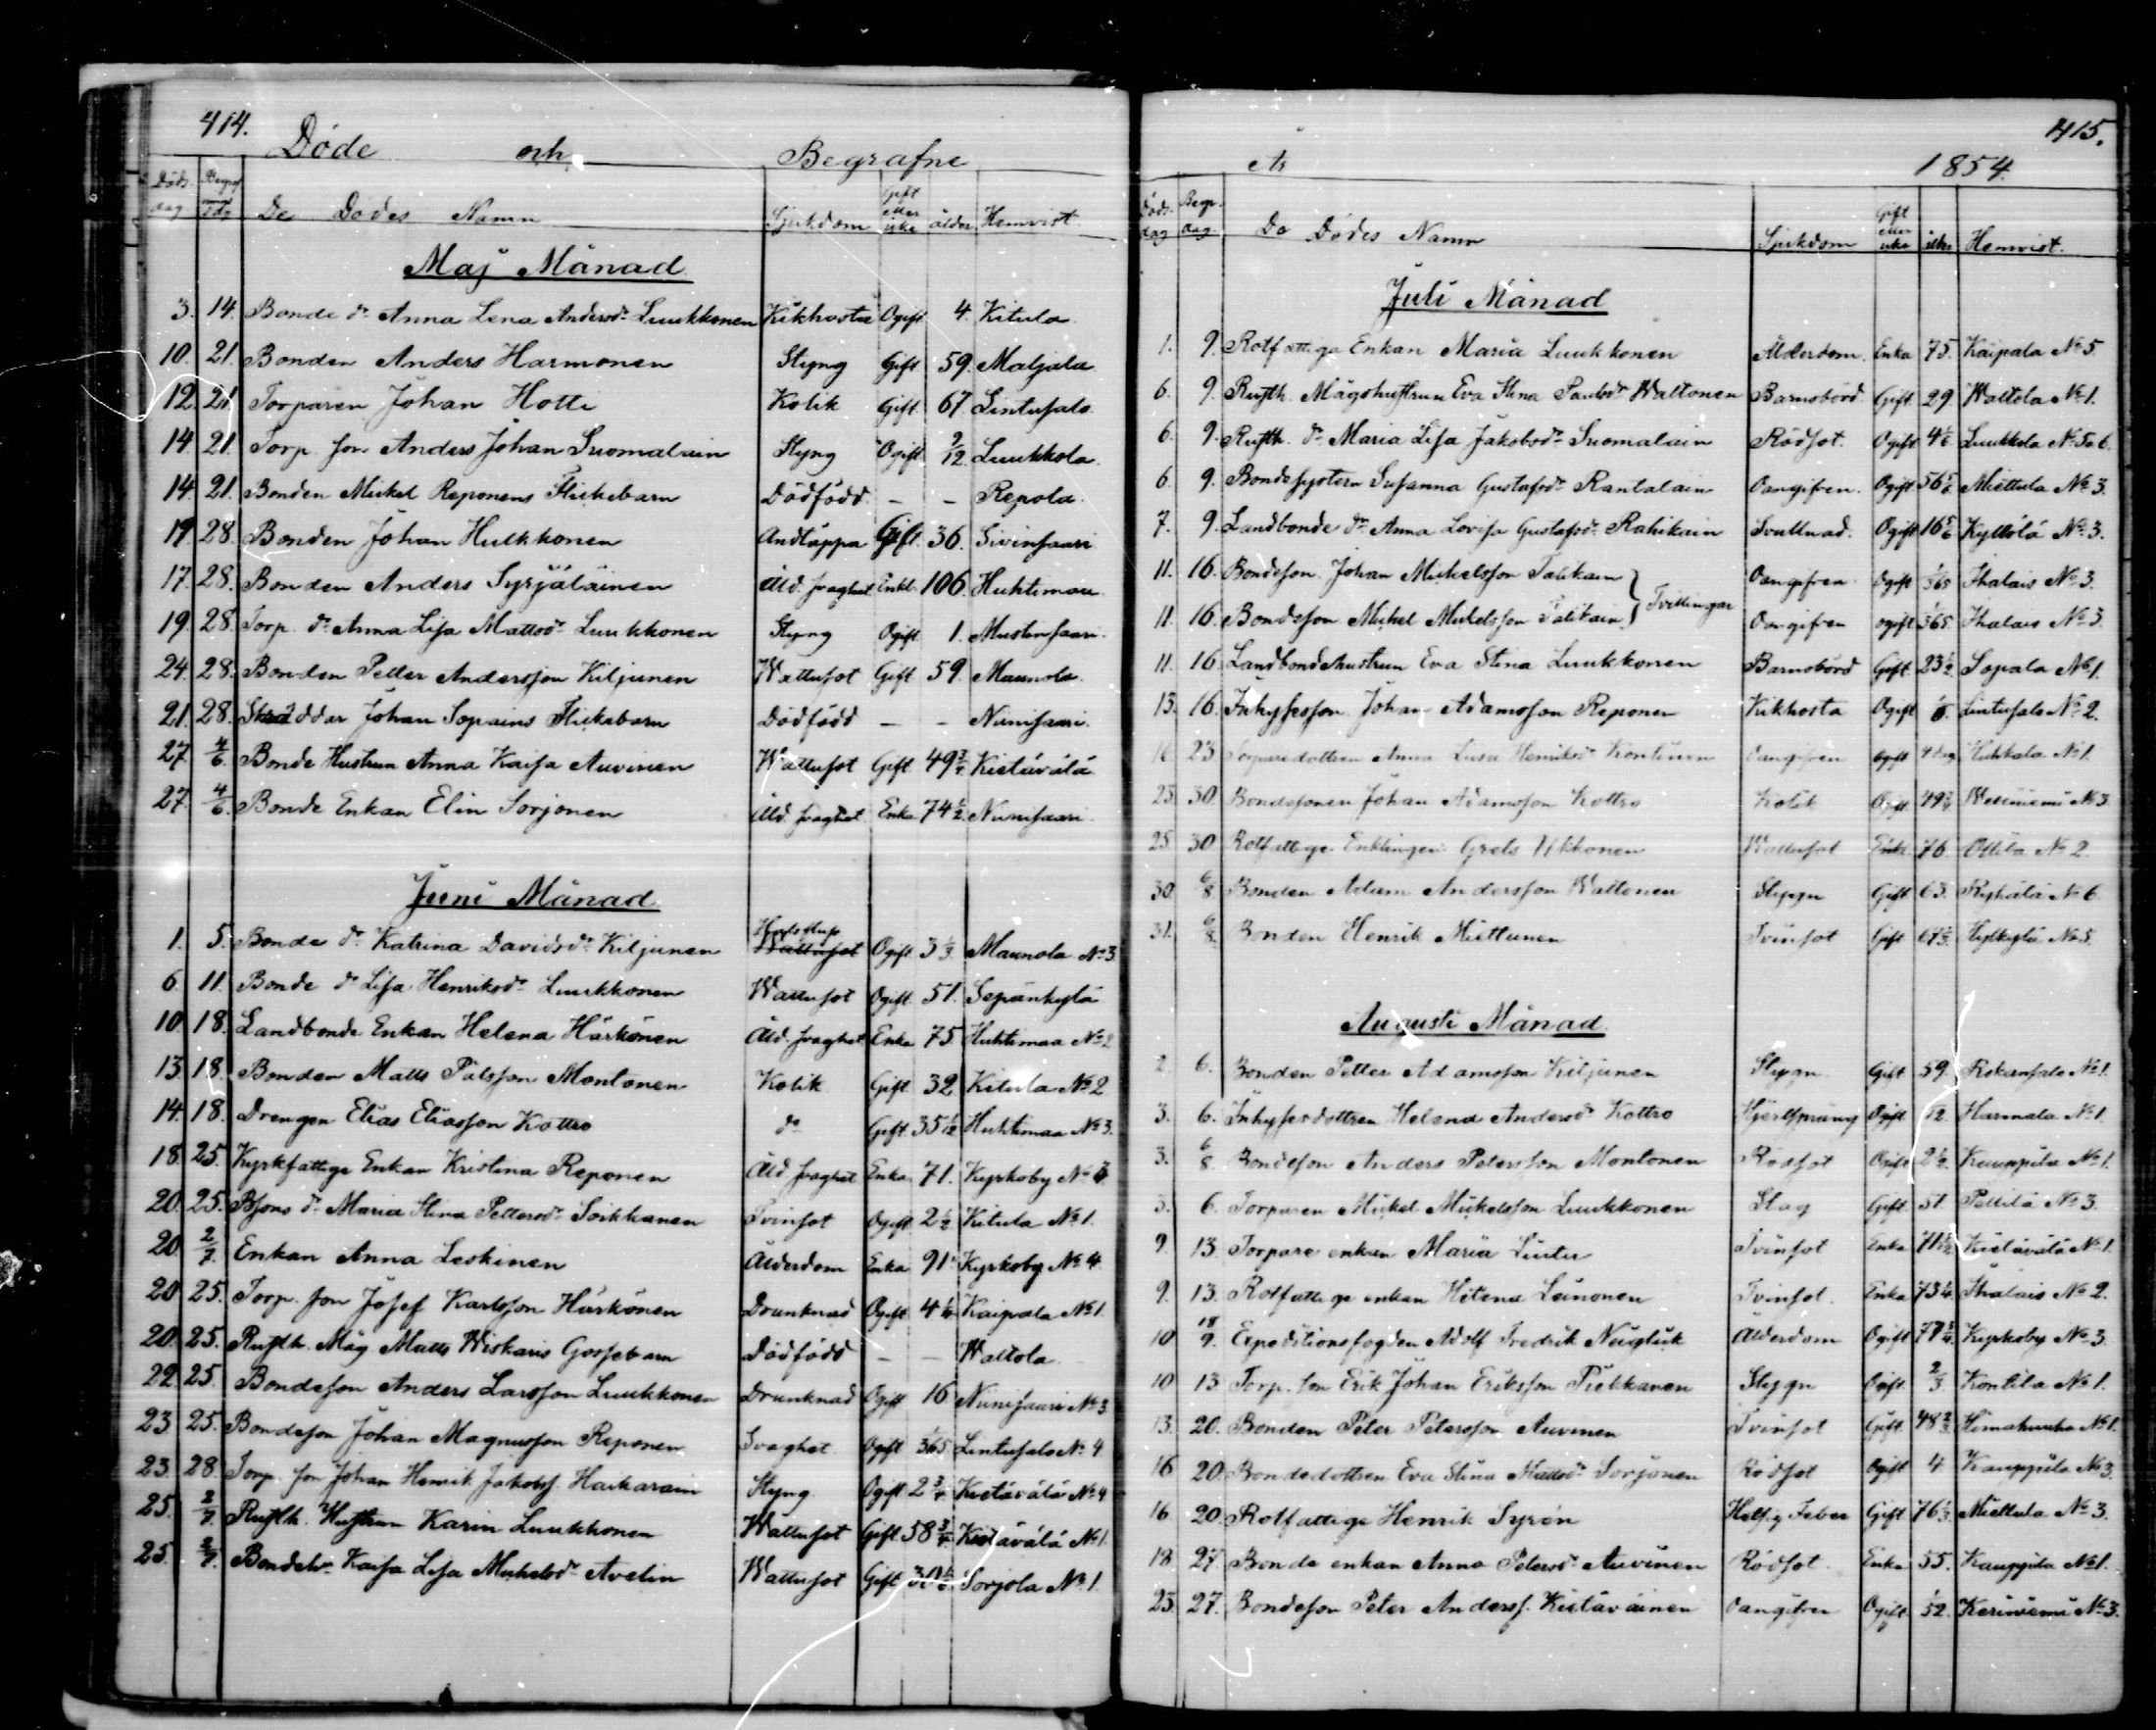 414.
Döde och Begrafne
Döds dag Begrafn. dag De Dödes Namn Sjukdom Gift eller icke ålder Hemvist.
Maj Månad
3. 14. Bonde dr Anna Lena Andersdr Luukkonen Kikhosta Ogift 4. Kitula
10. 21. Bonden Anders Harmonen Styng Gift 59. Matjala
12. 21. Torparen Johan Hotti Kolik Gift 67 Lintusalo
14. 21. Torp. son Anders Johan Suomalain Styng Ogift 2/12 Luukkola.
14. 21. Bonden Mickel Reponens Flickebarn Dödfödd – – Repola.
19. 28. Bonden Johan Hulkkonen Andtäppa Gift 36. Sivinsaari
17. 28. Bonden Anders Syrjäläinen Åld. svaghet Enkl. 106. Huhtimaa
19. 28. Torp. dr Anna Lisa Mattsdr Luukkonen Styng Ogift 1. Mustinsaari.
24. 28. Bonden Petter Andersson Kiljunen Wattusot Gift 59. Maunola.
21. 28. Skräddar Johan Sopains Flickebarn Dödfödd – – Niinisaari.
27. 4/6. Bonde Hustrun Anna Kaisa Auvinen Wattusot Gift 49 Kietävälä
27. 4/6. Bonde Enkan Elin Sorjonen Åld. svaghet. Enka 74 1/2. Niinisaari.
Juni Månad
1. 5. Bonde dr Katrina Davidsdr Kiljunen Wattusot Ogift 3 1/3. Maunola No 3
6. 11. Bonde dr Lisa Henriksdr Luukkonen Wattusot Ogift. 51. Sepänkylä
10. 18. Landbonde Enkan Helena Härkönen Åld. svaghet Enka 75. Huhtimaa No 2
13. 18. Bonden Matts Pålsson Montonen Kolik Gift 32. Kitula No 2
14. 18. Drengen Elias Eliasson Kottro do Gift. 35 1/12 Huhtimaa No 3.
18. 25. Kyrkfattige Enkan Kristina Reponen Åld. svaghet Enka 71. Kyrkoby No
20. 25. Bsons dr Maria Stina Pettersdr Soikkanen Tvinsot Ogift 2 1/2 Kitula No 1.
20. 2/7. Enkan Anna Leskinen Ålderdom Enka 91. Kyrkoby No 4
20. 25. Torp. son Josef Karlsson Härkönen Drunknad Ogift 4 Kaipala No 1.
20. 25. Rusth. Måg Matts Wiskaris Gossebarn Dödfödd – – Waltola.
22. 25. Bondeson Anders Larsson Luukkonen Drunknad Ogift 16 Niinisaari No 3
23. 25. Bondeson Johan Magnusson Reponen Svaghet Ogift 1/365 Lintusalo No 4
23. 28. Torp. son Johan Henrik Jakobss. Haikarain Styng Ogift 2 3/4 Kietävälä No 4
25. 2/7. Rusth. Hustrun Karin Luukkonen Wattusot Gift 58 3/4 Kietävälä No 1.
25. 2/7. Bondehr Kaisa Lisa Mickelsdr Avelin Wattusot Gift Sorjola No 1.
415.
År 1854.
Döds dag Begr. dag. De Dödes Namn Sjukdom Gift eller icke ålder Hemvist.
Juli Månad
1. 9. Rotfattige Enkan Maria Luukkonen Ålderdom. Enka 75. Kaipala No 5.
6. 9. Rusth. Mågshustrun Eva Stina Paulsdr Waltonen Barnsbörd Gift 29. Waltola No 1.
6. 9. Rusth. dr Maria Lisa Jakobsdr Suomalain Rödsot. Ogift 4 1/6 Luukkola No 5 o 6.
6. 9. Bondesystern Susanna Gustafsdr Rantalain Oangifven. Ogift 56 Miettula No 3.
7. 9. Landbonde dr Anna Lovisa Gustafsdr Rahikain Svullnad. Ogift 16 5/6 Kyllölä No 3.
11. 16. Bondeson Johan Mickelsson Talikain } Tvillingar Oangifven Ogift 1/365 Ihalais No 3.
11. 16. Bondeson Mickel Mickelsson Talikain Oangifven ogift 1/365. Ihalais No 3.
11. 16. Landbondehustrun Eva Stina Luukkonen Barnsbörd Gift. 23 1/2 Sopala No 1.
13. 16. Inhysesson Johan Adamsson Reponen Kikhosta Ogift Lintusalo No 2.
16. 23. Torparedottren Anna Lisa Henriksdr Kontinen Oangifven ogift 4 dag Hukkala No 1.
23. 30. Bondesonen Johan Adamsson Kottro Kolik Ogift. 49 Wesiniemi No 3.
25. 30. Rotfattige Enklingen Grels Ukkonen Wattusot Enkl. 76. Ollila No 2.
30. 6/8. Bonden Adam Andersson Waltonen Styngn Gift. 63. Ryhälä No 6.
31. 6/8. Bonden Henrik Miettunen Tvinsot Gift Hylkylä No 5.
Augusti Månad.
2. 6. Bonden Petter Adamsson Kiljunen Styngn. Gift 59. Rokansalo No 1.
3. 6. Inhysesdottren Helena Andersdr Kottro Hjertsprang Ogift /12. Harmala No 1.
3. 6/8. Bondeson Anders Petersson Montonen Rödsot Ogift 2 1/2. Kauppila No 1.
3. 6. Torparen Mickel Mickelsson Luukkonen Slag Gift 51. Pellilä No 3.
9. 13. Torpare enkan Maria Linter Tvinsot Enka 71 Kietävälä No 1.
9. 13. Rotfattige enkan Helena Leinonen Tvinsot. Enka 73 1/4. Ihalais No 2.
10. 18/9. Expeditionsfogden Adolf Fredrik Neuglick Ålderdom Ogift Kyrkoby No 3.
10. 13. Torp. son Erik Johan Eriksson Piekkanen Styngn Ogift 2/3 Konlila No 1.
13. 20. Bonden Peter Petersson Auvinen Tvinsot Gift. 48 Himahuuha No 1.
16. 20. Bondedottren Eva Stina Mattsdr Sorjonen Rödsot Ogift 4 Kauppila No 3.
16. 20. Rotfattige Henrik Syrén Hetsig Feber Gift 76 Miettula No 3.
18. 27. Bonde enkan Anna Petersdr Auvinen Rödsot. Enka 55. Kauppila No 1.
23. 27. Bondeson Peter Anderss. Kietäväinen Oangifven Ogift 1/52. Keriniemi No 3.